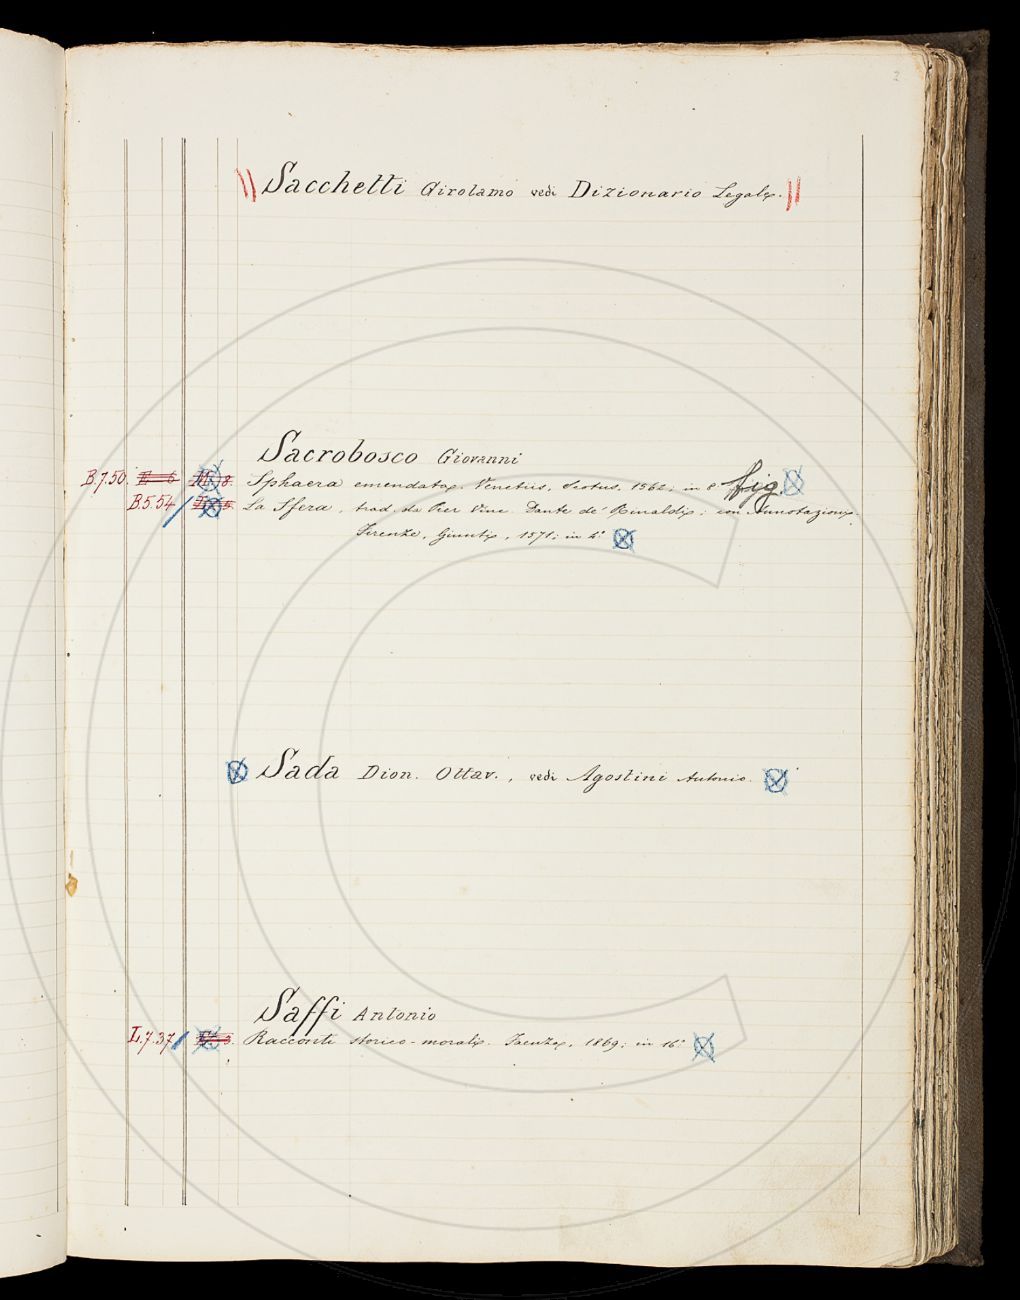 2
Sacchetti Girolamo vedi Dizionario Legale.
Sacrobosco Giovanni
B.7.50. E 6 8. Sphaera emendata. Venetiis, Scotus, 1562; in 8. fig.
B.5.54 La Sfera, trad. da Pier Vinc. Dante de' Rinaldi; con Annotazioni.
Firenze, Giunti, 1571; in 4.°
Sada Dion. Ottav., vedi Agostini Antonio.
Saffi Antonio
L.7.37 3. Racconti storico-morali. Faenza, 1869; in 16.°